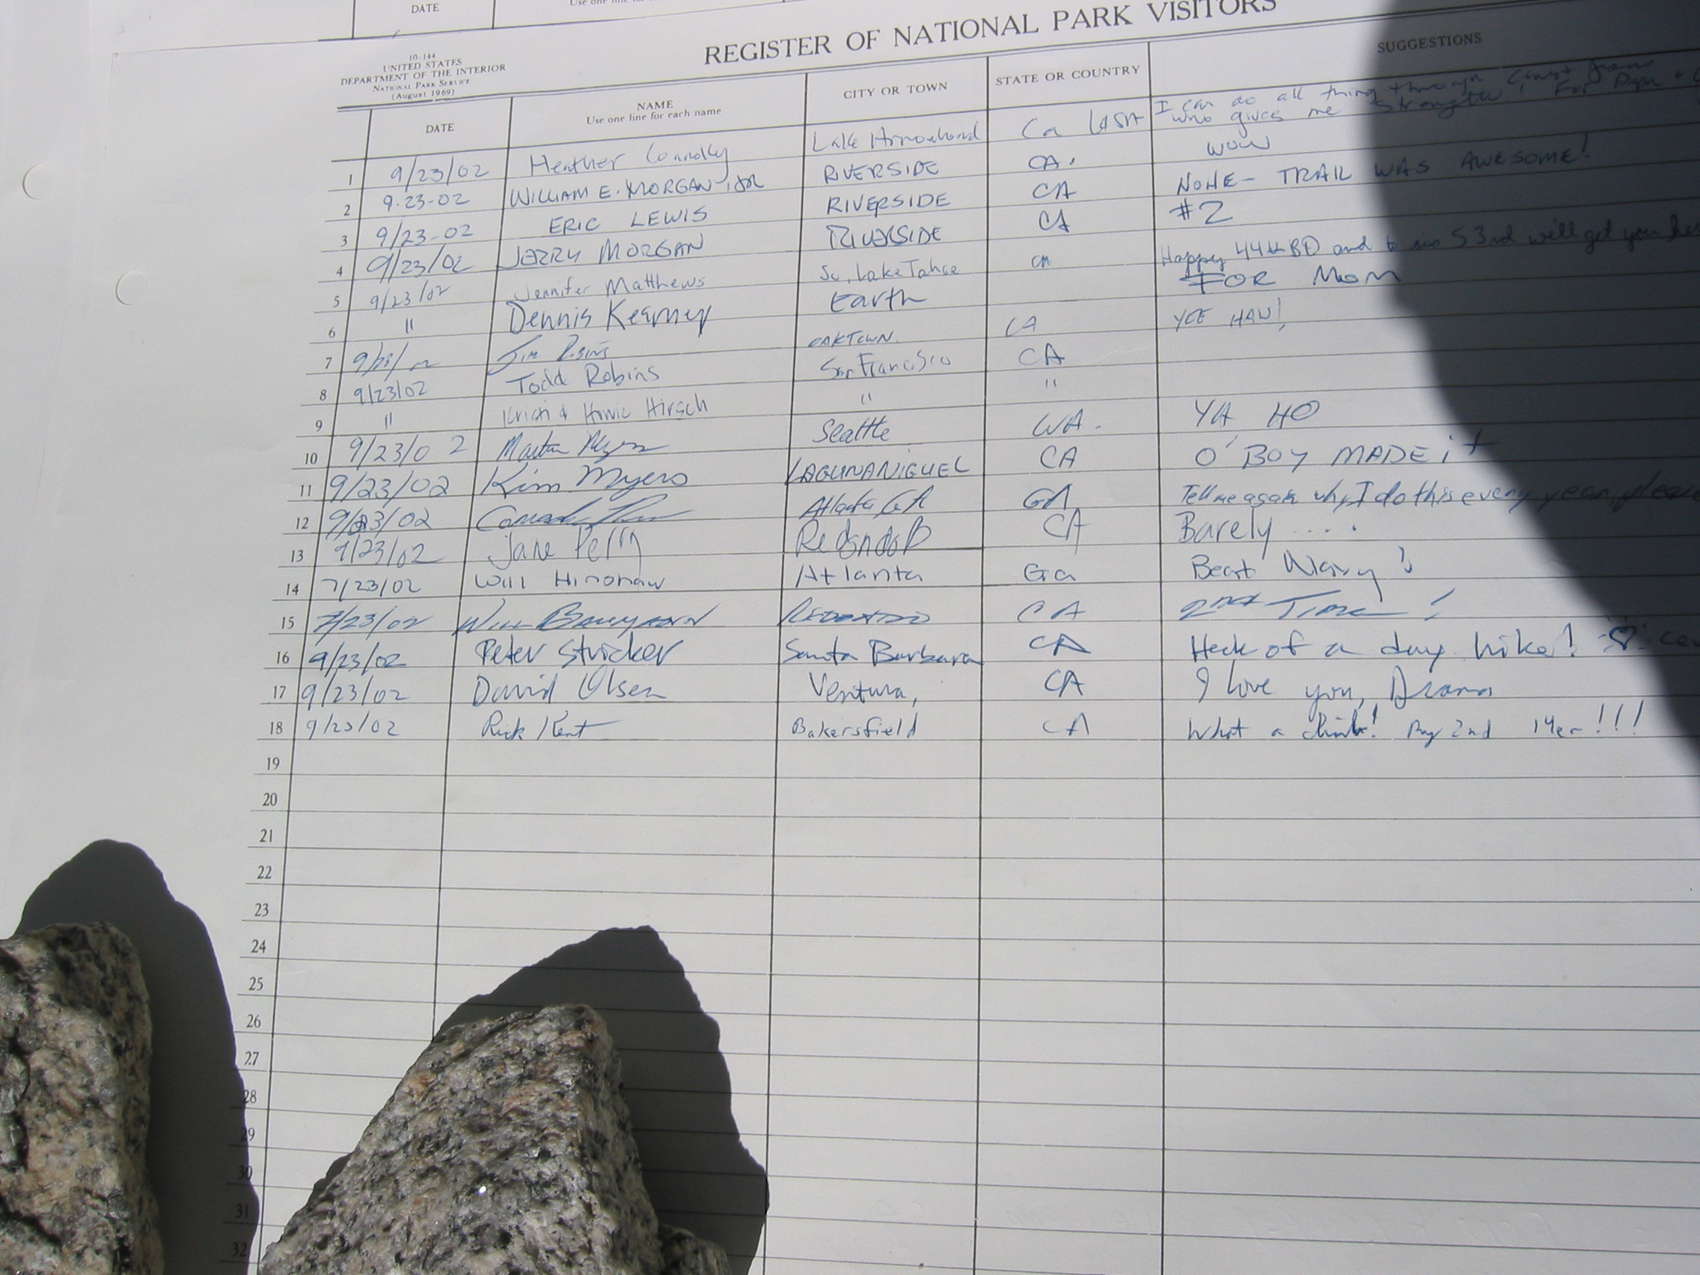 DATE
REGISTER OF NATIONAL PARK VISITORS
10-144
UNITED STATES
DEPARTMENT OF THE INTERIOR
NATIONAL PARK SERVICE
(August 1969)
DATE NAME CITY OR TOWN STATE OR COUNTRY SUGGESTIONS
Use one line for each name
I can do all thing through
who gives me For
1 9/23/02 Heather Connolly Lake Ca USA WOW
2 9-23-02 WILLIAM E. MORGAN, JR RIVERSIDE CA. NONE - TRAIL WAS AWESOME!
3 9/23-02 ERIC LEWIS RIVERSIDE CA #2
4 9/23/02 JERRY MORGAN RIVERSIDE CA Happy 44th BD and to will get you
5 9/23/02 Jennifer Matthews So. Lake Tahoe CA FOR MOM
6 " Dennis Kearney Earth YEE HAW!
7 Jim OAKTOWN CA
8 9/23/02 Todd Robins San Francisco CA
9 " Hirsch " "
10 9/23/02 Seattle WA. YA HO
11 9/23/02 Kim Myers LAGUNA NIGUEL CA O'BOY MADE it
12 9/23/02 Atlanta GA GA Tell me again why I do this every year, please
13 9/23/02 Jane Perry Redondo B CA Barely ....
14 7/23/02 Will Atlanta Ga Beat Navy!
15 7/23/02 Will REDONDO CA 2ND TIME!
16 9/23/02 Peter Stricker Santa Barbara CA Heck of a day hike!
17 9/23/02 David Olsen Ventura, CA I love you,
18 9/23/02 Rick Kent Bakersfield CA What a climb! My 2nd 14er!!!
19
20
21
22
23
24
25
26
27
28
29
30
31
32